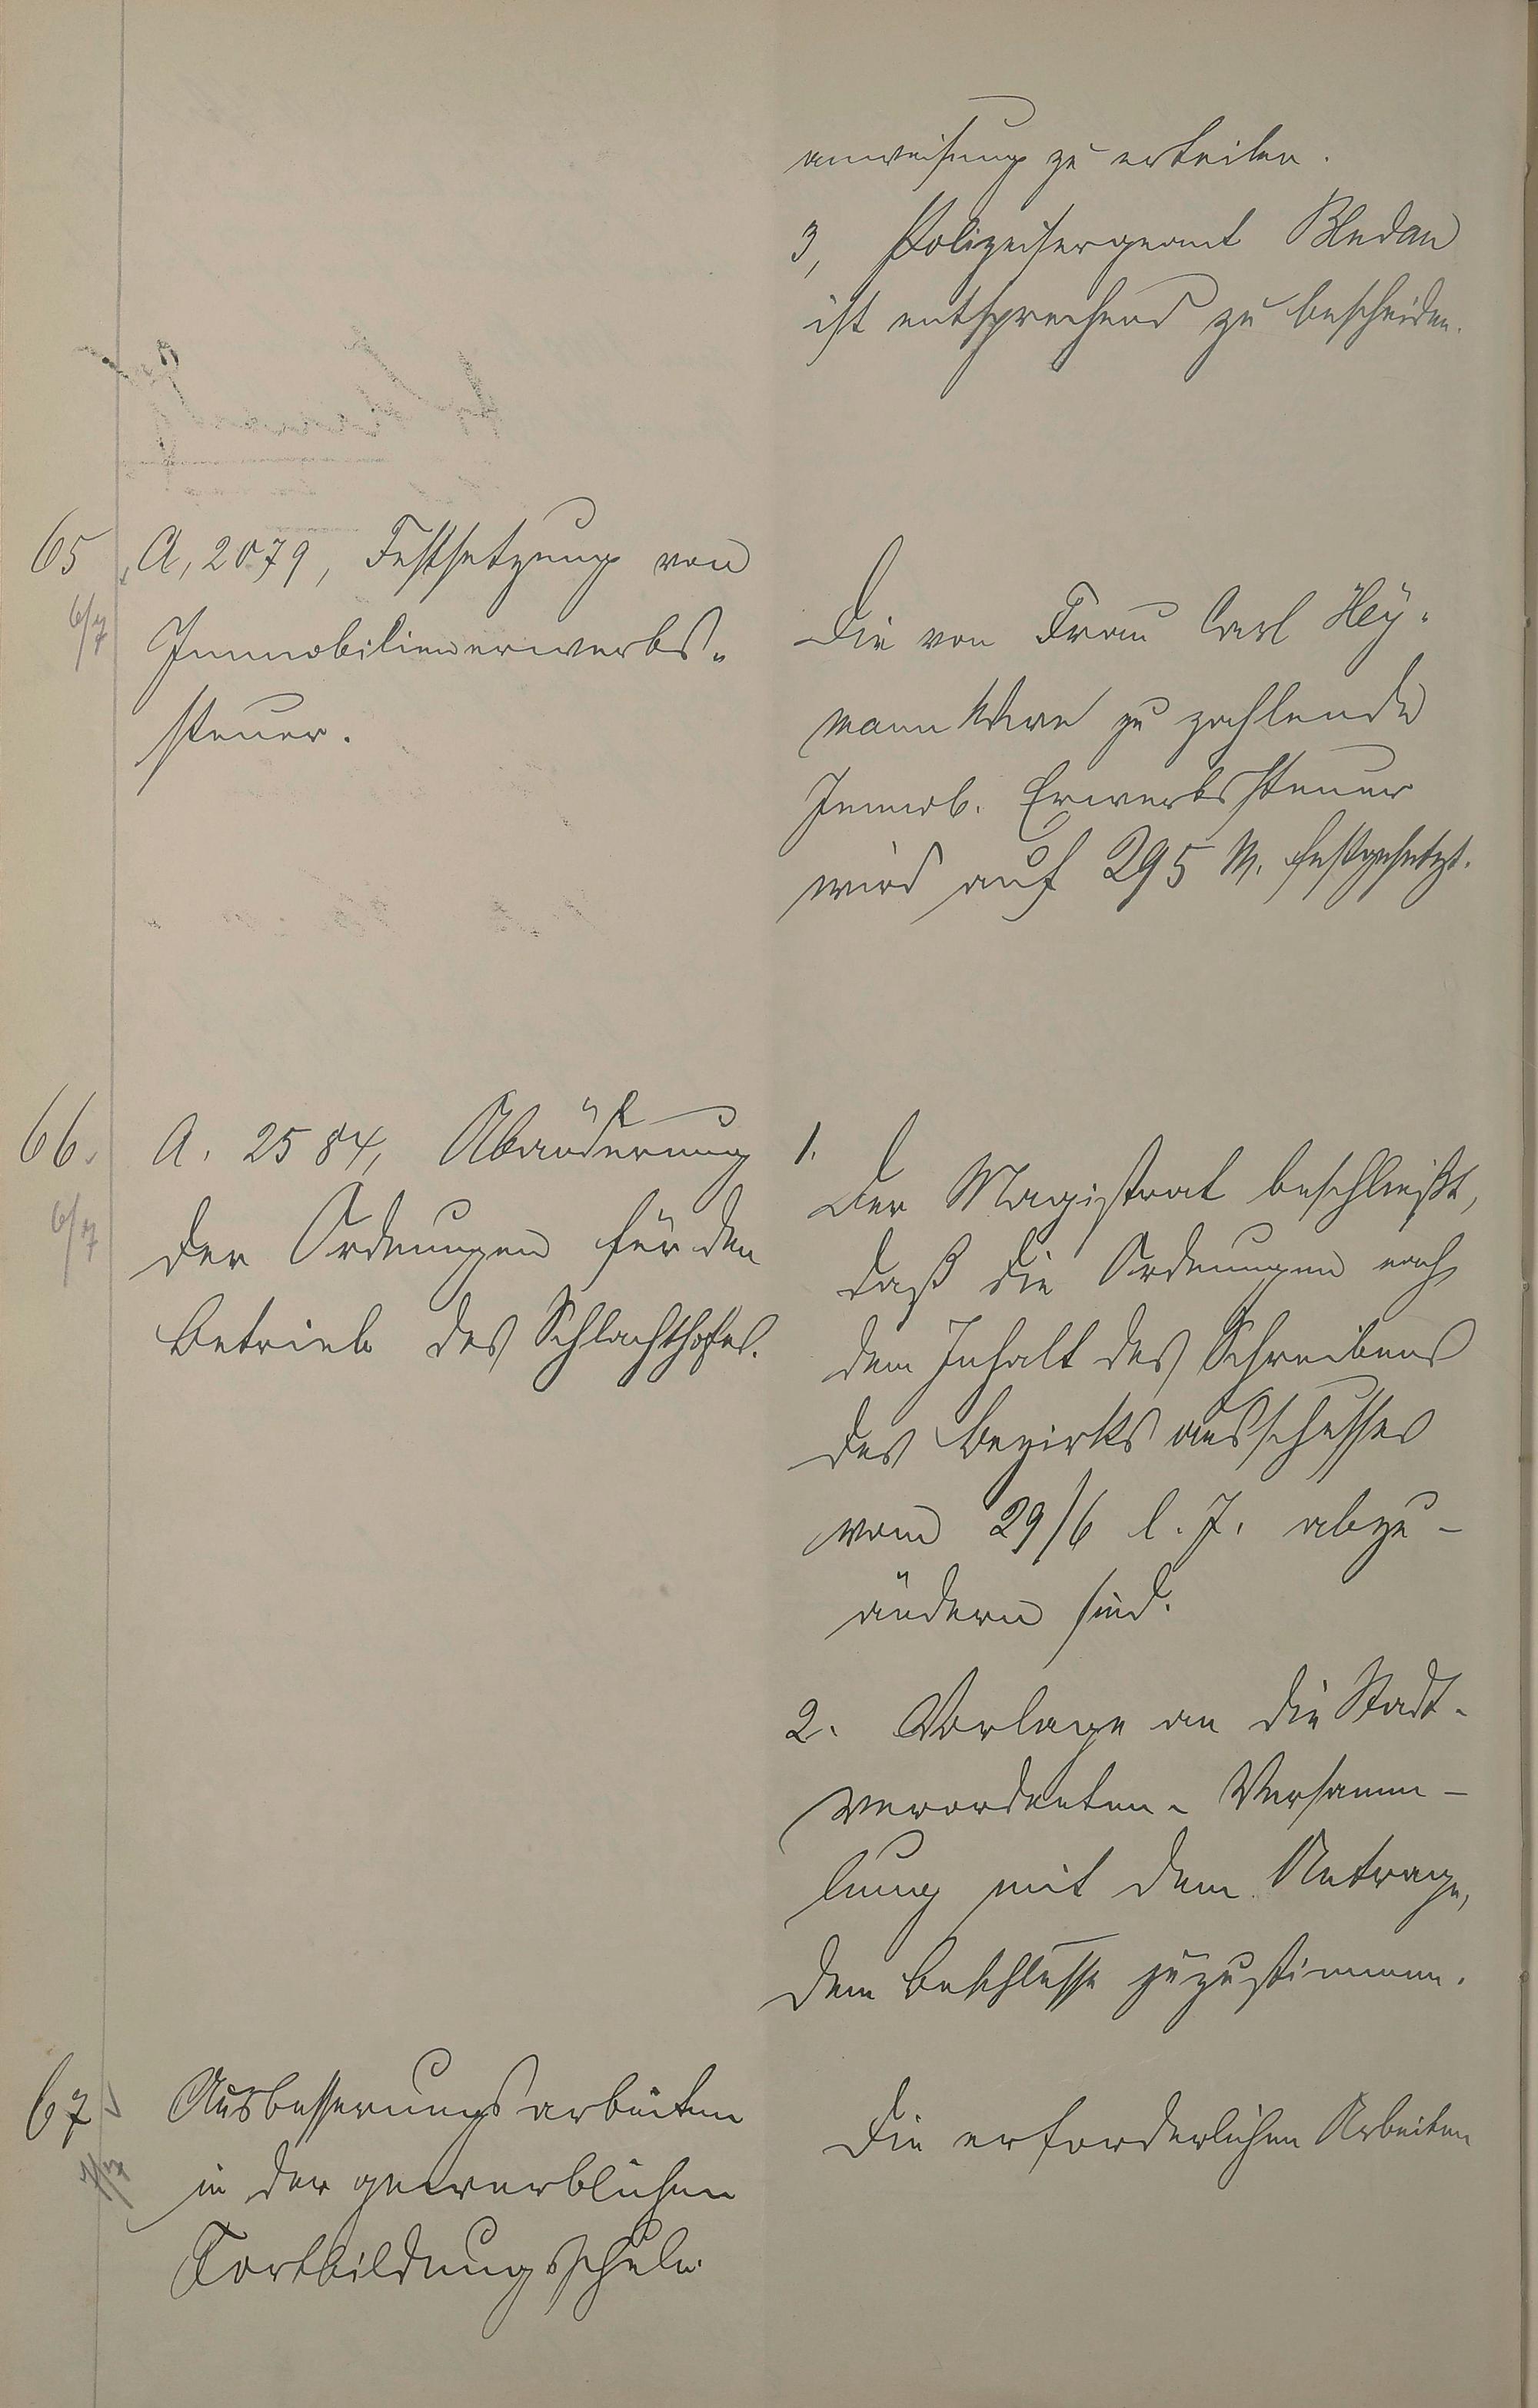 anweisung zu erteilen.
3, Polizeisergeant Bledau
ist entsprechend zu bescheiden.
65 A, 2079, Festsetzung von
6/7 Immobilienerwerbs-
steuer.
Die von Frau Carl Hey-
mann Wwe zu zahlende
Immob. Erwerbssteuer
wird auf 295 M. festgesetzt.
66. A. 2584, Abänderung
6/7 der Ordnungen für den
Betrieb des Schlachthofes.
1. Der Magistrat beschließt,
daß die Ordnungen nach
dem Inhalt des Schreibens
des Bezirksausschusses
vom 29/6 l. J. abzu-
ändern sind.
2. Vorlage an die Stadt-
verordneten-Versamm-
lung mit dem Antrage,
dem Beschlusse zuzustimmen.
67 Ausbesserungsarbeiten
in der gewerblichen
Fortbildungsschule.
Die erforderlichen Arbeiten